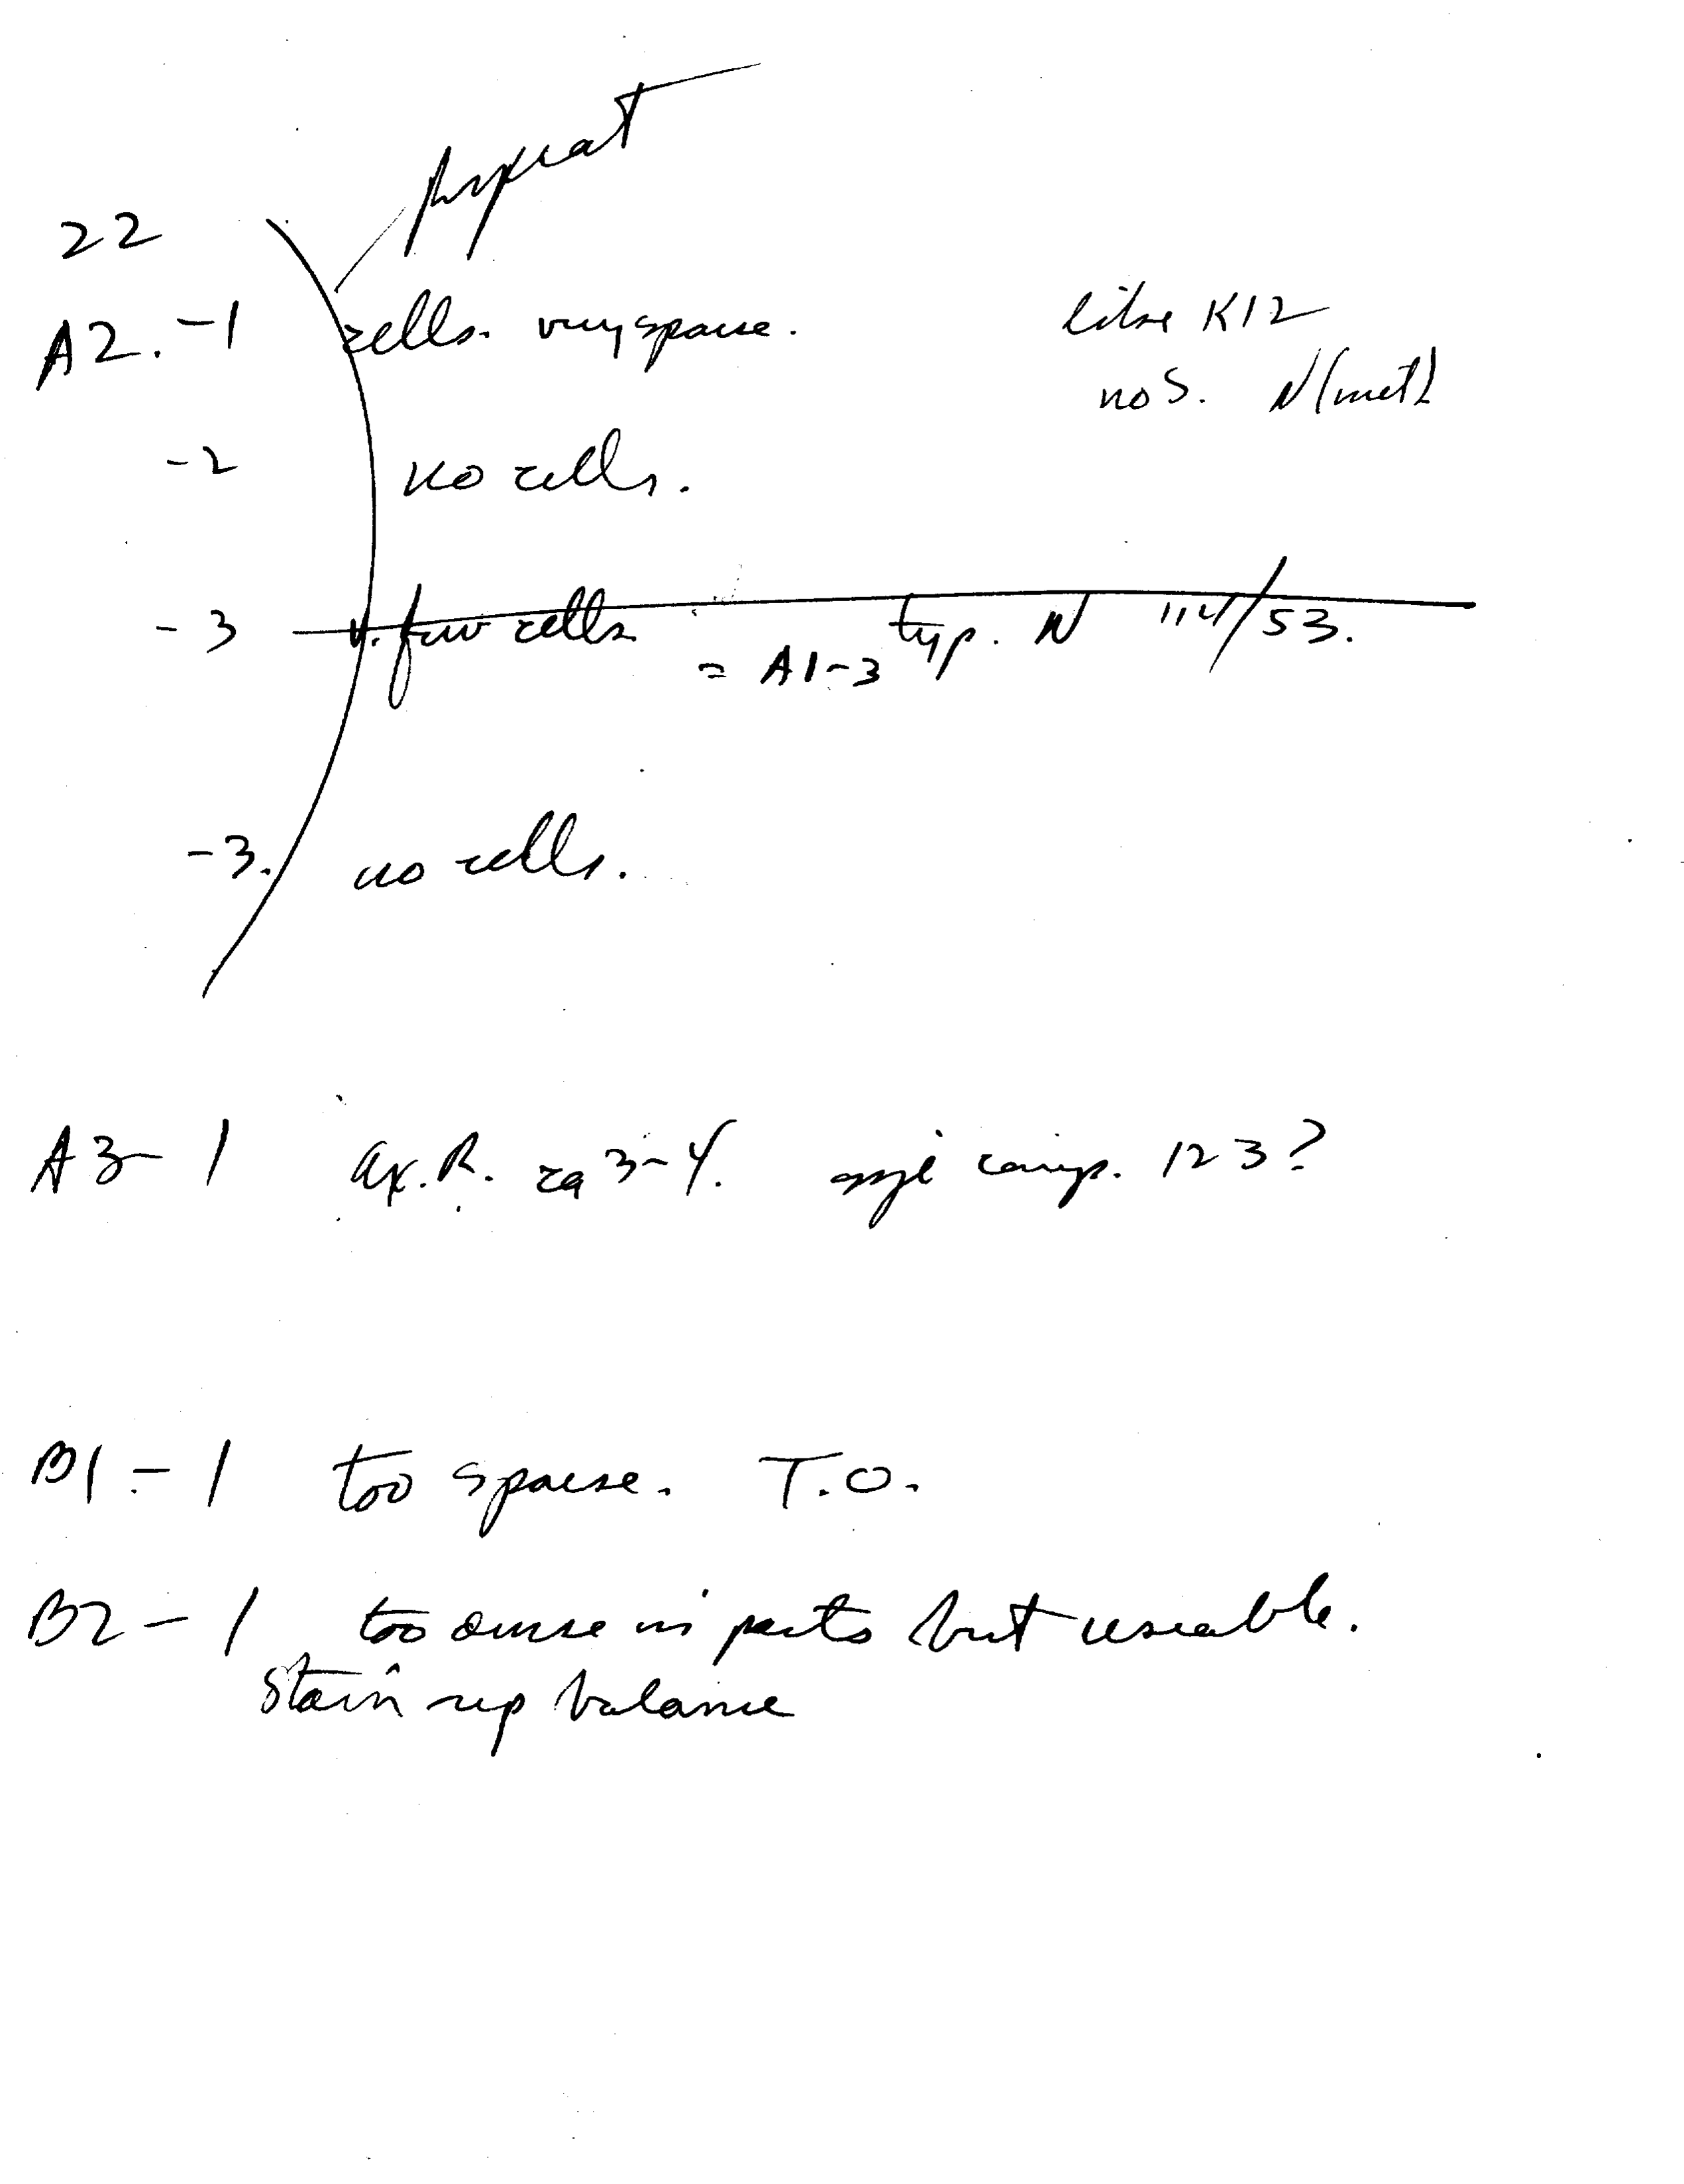 repeat
22
A2. -1 cells. very sparse. like K12
no S. N(met)
-2 no cells.
-3 v. few cells typ. N 114/53.
= A1-3
-3. no cells.
A3-1 ca 3-4. comp. 123?
B1-1 too sparse. T.O.
B2-1 too dense in parts but useable.
Stain up balance